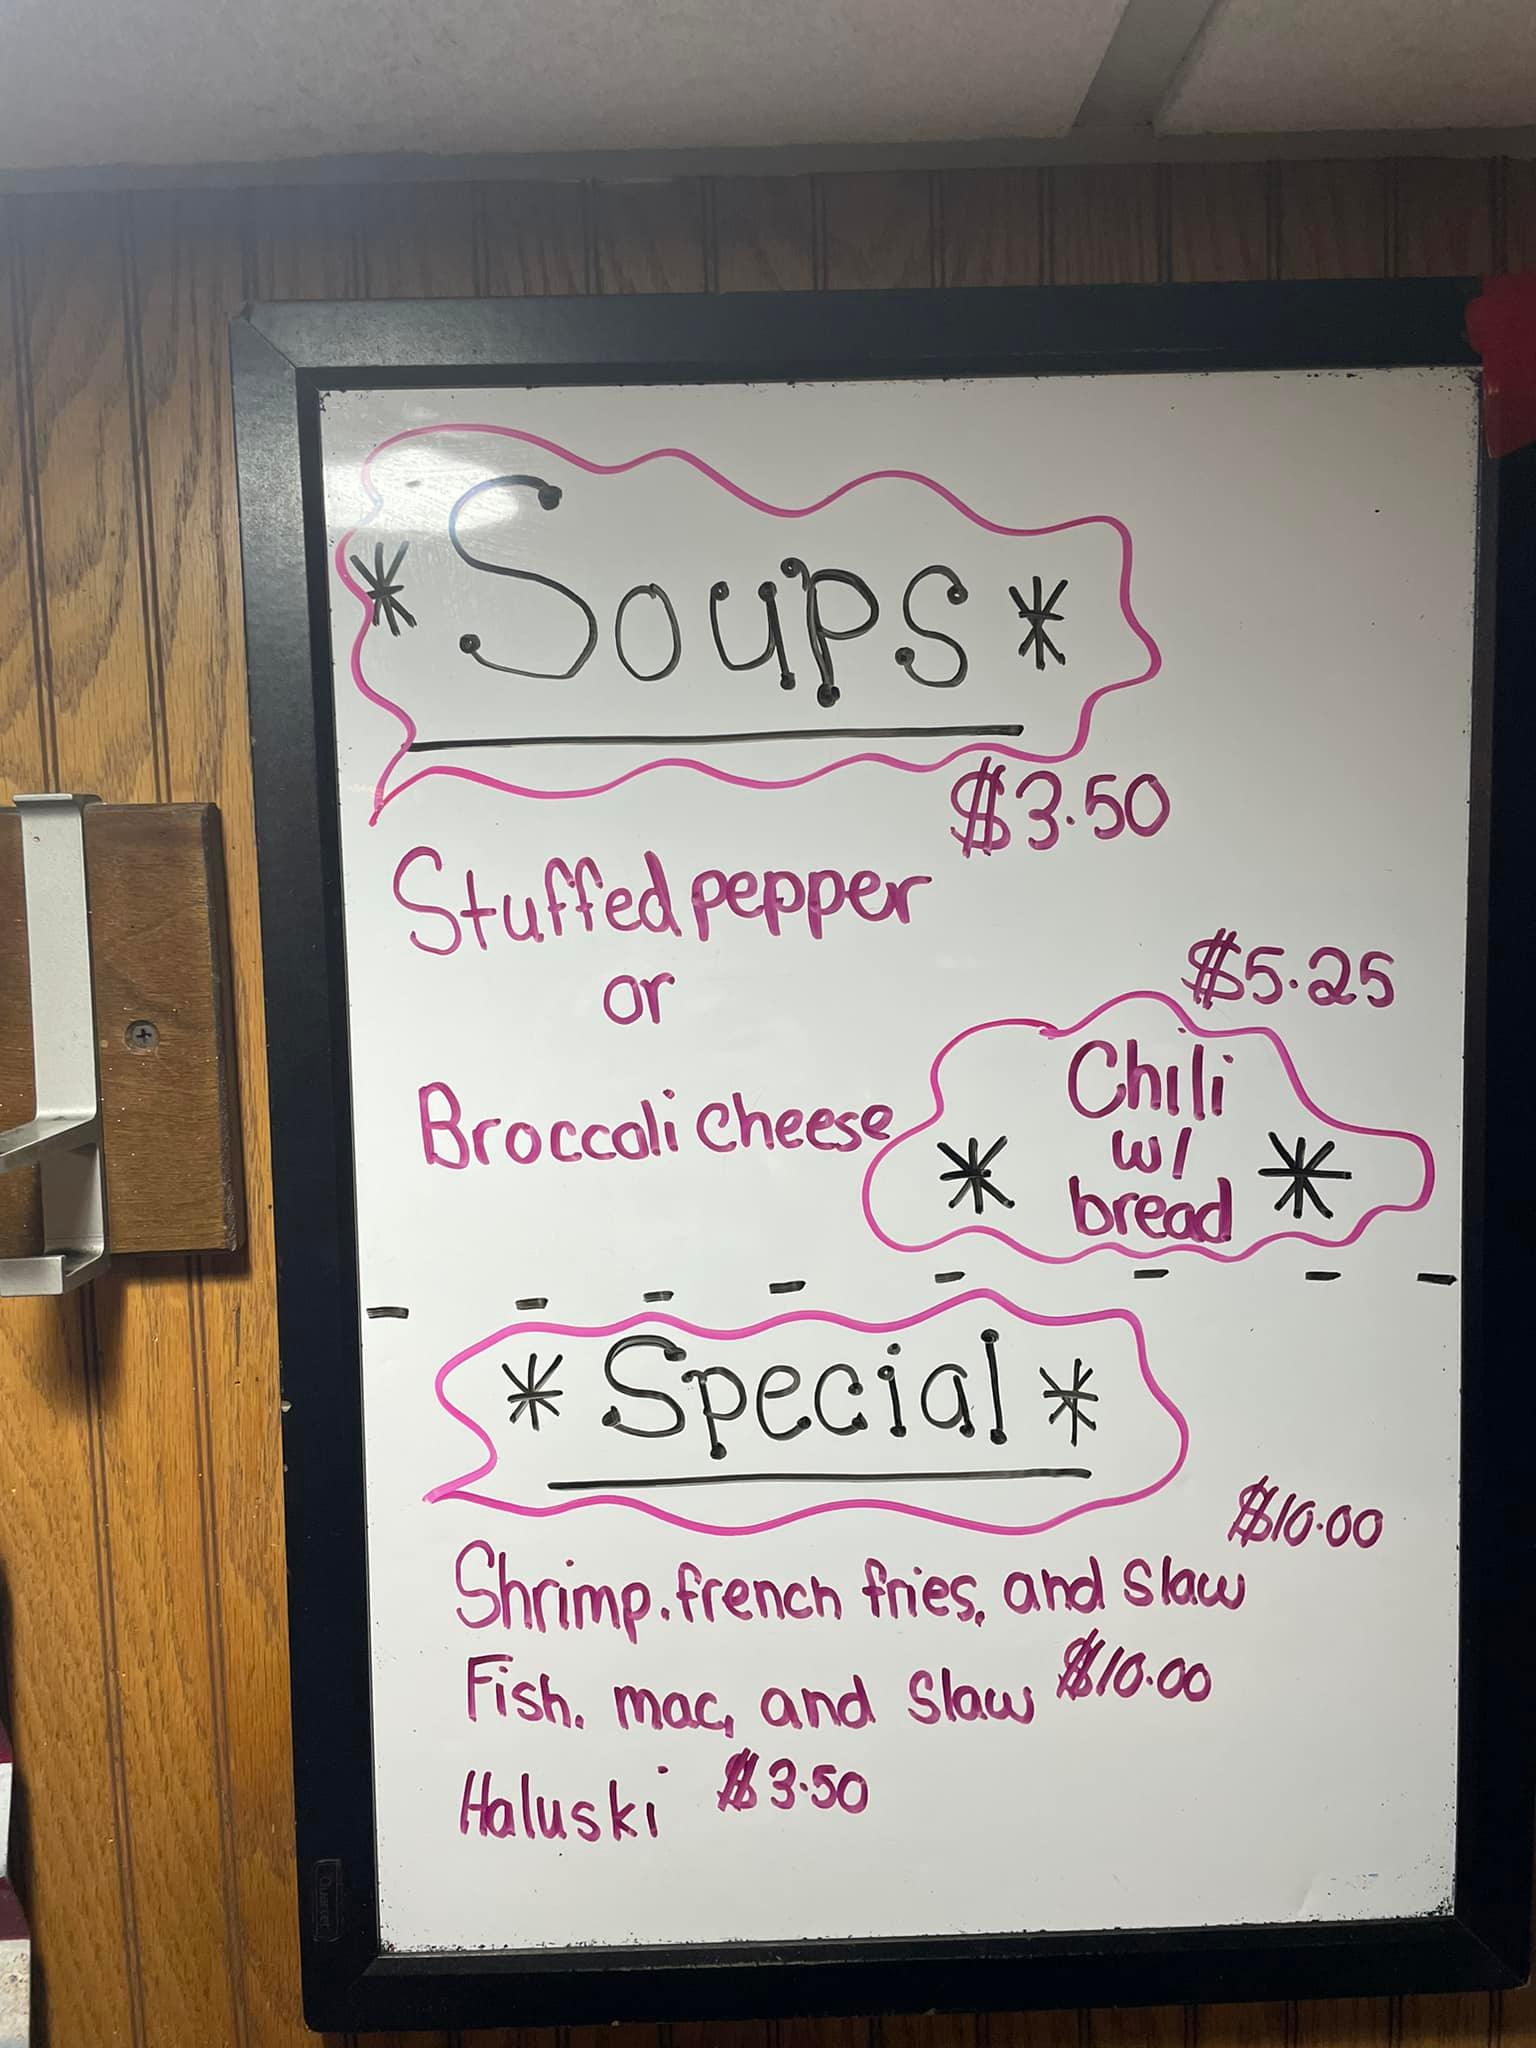 * Soups *
$3.50
Stuffed pepper
or
Broccoli cheese
$5.25
* Chili
w/
bread *
* Special *
$10.00
Shrimp. french fries, and slaw
Fish. mac, and slaw $10.00
Haluski $3.50
Quartet